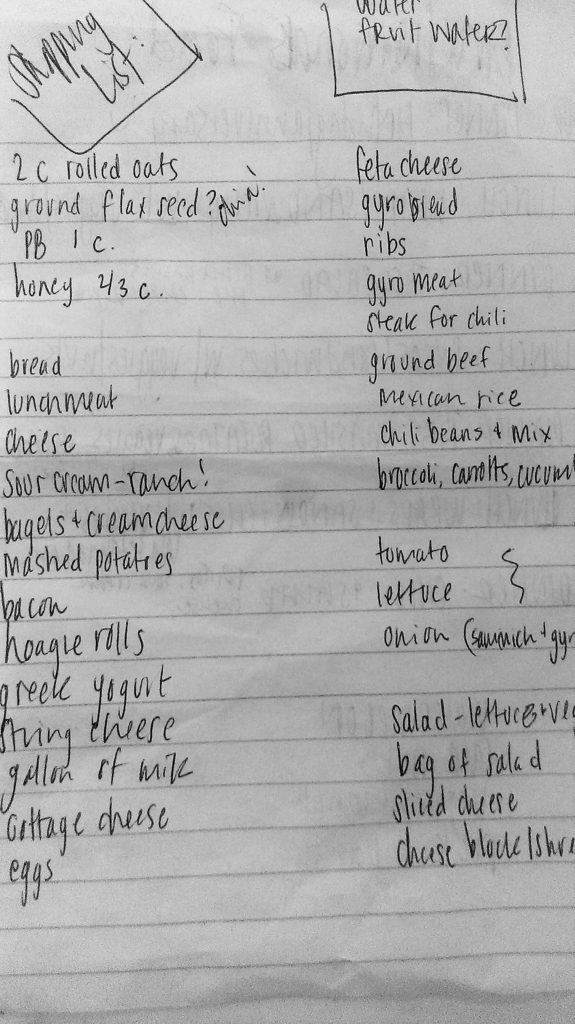 Shopping
List:
water
fruit water?
2 c rolled oats
ground flax seed?
PB 1 c.
honey 2/3 c.
bread
lunchmeat
cheese
sour cream-ranch!
bagels + cream cheese
mashed potatoes
bacon
hoagie rolls
greek yogurt
string cheese
gallon of milk
cottage cheese
eggs
feta cheese
gyro bread
ribs
gyro meat
steak for chili
ground beef
mexican rice
chili beans + mix
broccoli, carrotts, cucum
tomato
lettuce
onion (sammich + gyr
salad - lettuce + veg
bag of salad
sliced cheese
cheese block/shre